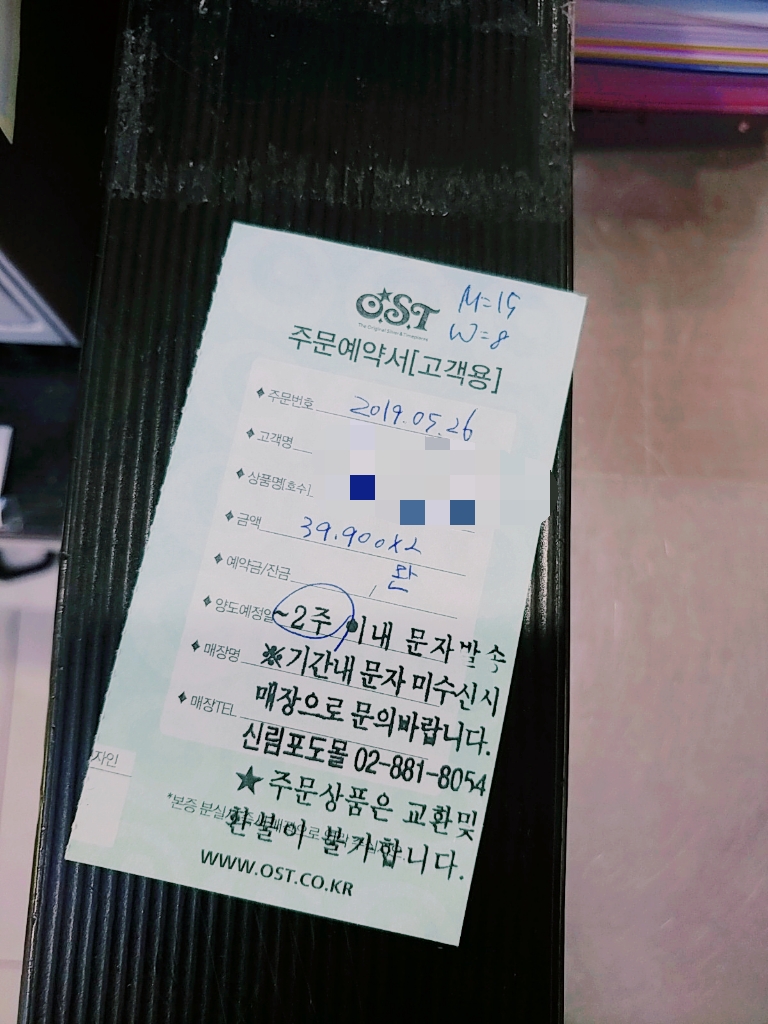 O.S.T
M=15
W=8
주문예약서[고객용]
◆ 주문번호 2019.05.26
◆ 고객명
◆ 상품명[호수]
◆ 금액 39.900x2
◆ 예약금/잔금 / 완
◆ 양도예정일 ~2주 이내 문자발송
◆ 매장명 ※기간내 문자 미수신시
매장으로 문의바랍니다.
◆ 매장TEL 신림포도몰 02-881-8054
★주문상품은 교환및
환불이 불가합니다.
*본증 분실시
자인
WWW.OST.CO.KR